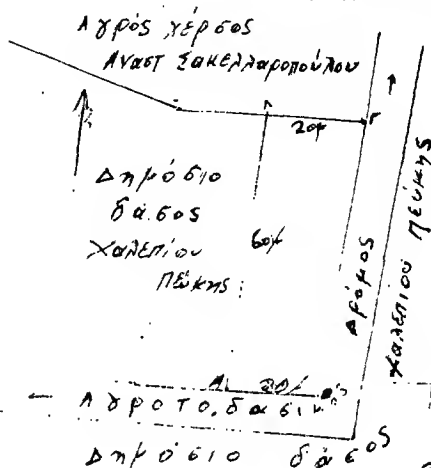 Αγρός χέρσος
Αναστ Σακελλαροπούλου
20μ
Γ
Δημόσιο
δάσος
Χαλεπίου
Πεύκης
60μ
Δρόμος
Χαλεπίου Πεύκης
Α
Αγροτο.δασικός
Δημόσιο δάσος